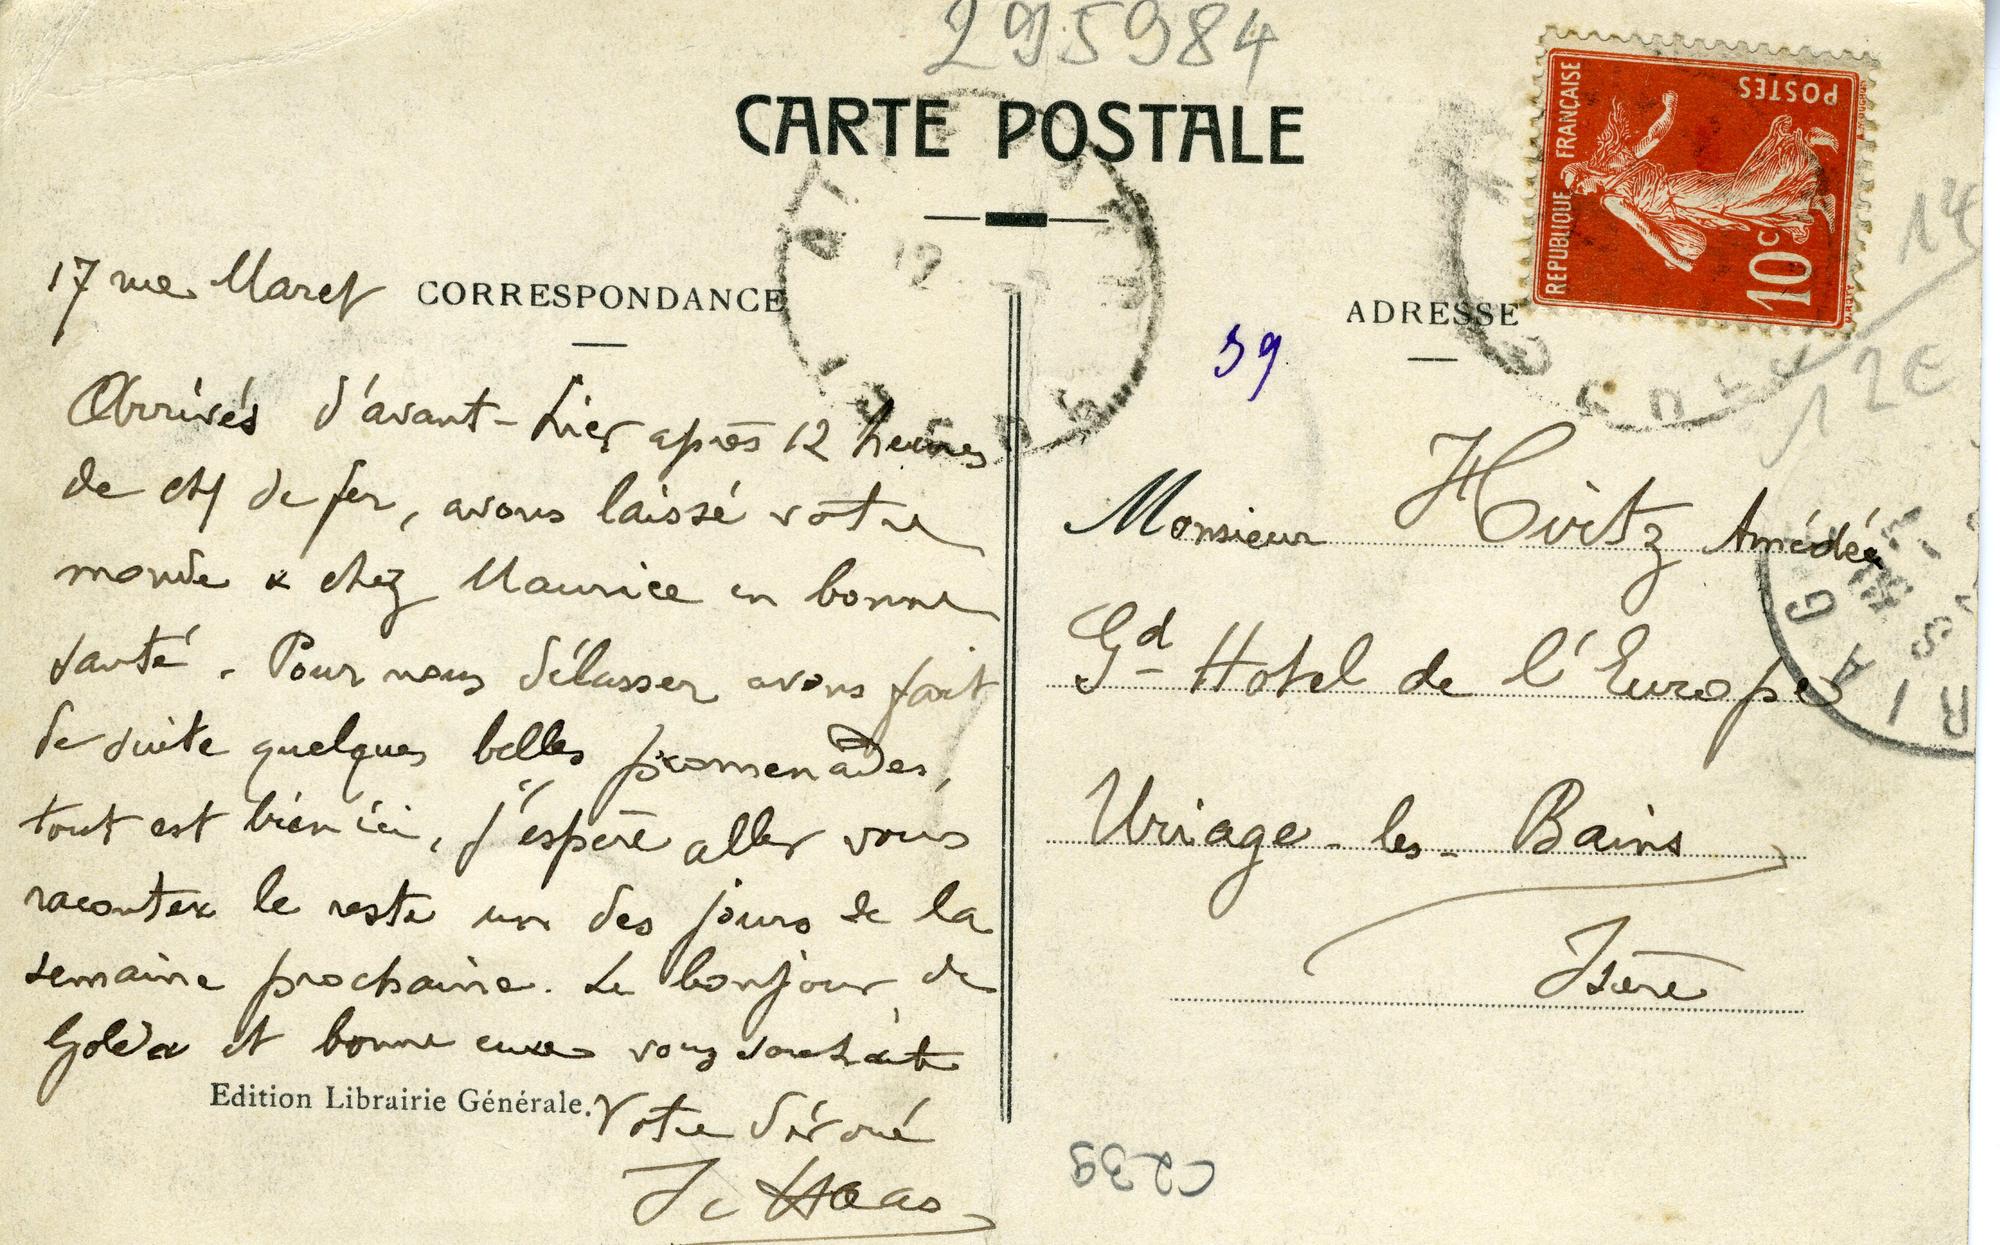 295984
CARTE POSTALE
REPUBLIQUE FRANÇAISE
POSTES
10c
14
12€
17 rue Maret
CORRESPONDANCE
ADRESSE
39
Arrivés d'avant-hier après 12 heures
de ch de fer, avons laissé votre
monde chez Maurice en bonne
santé. Pour nous délasser avons fait
de suite quelques belles promenades,
tout est bien ici, j'espère aller vous
raconter le reste un des jours de la
semaine prochaine. Le bonjour de
Golda et bonne cure vous souhaite
Votre dévoué
Haas
Monsieur Hirtz Amédée
Gd Hotel de l'Europe
Uriage-les-Bains
Isère
Edition Librairie Générale.
C239